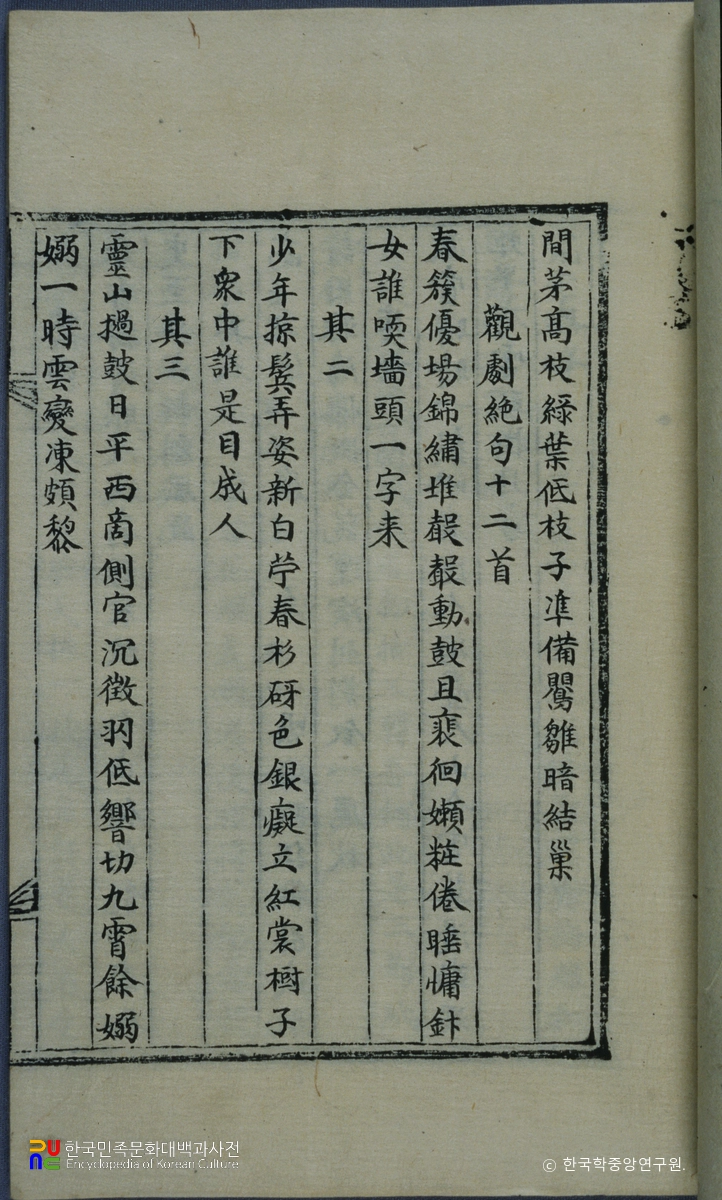 間茅髙枝綠葉低枝子準備鸎雛暗結巢
觀劇絶句十二首
春簇優場錦繡堆轂轂動鼓且裵徊嬾粧倦睡慵針
女誰喚墻頭一字来
其二
少年掠鬂弄姿新白苧春杉砑色銀癡立紅裳樹子
下衆中誰是目成人
其三
靈山撾鼓日平西商側官沉徵羽低響切九霄餘嫋
嫋一時雲變凍頗黎
한국민족문화대백과사전
Encyclopedia of Korean Culture
ⓒ 한국학중앙연구원.